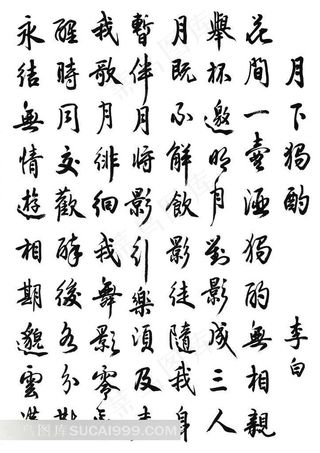 月下獨酌
李白
花間一壺酒獨酌無相親
舉杯邀明月對影成三人
月既不解飲影徒隨我身
暫伴月將影行樂須及春
我歌月徘徊我舞影零亂
醒時同交歡醉後各分散
永結無情遊相期邈雲漢
鸟图库SUCAI999.COM